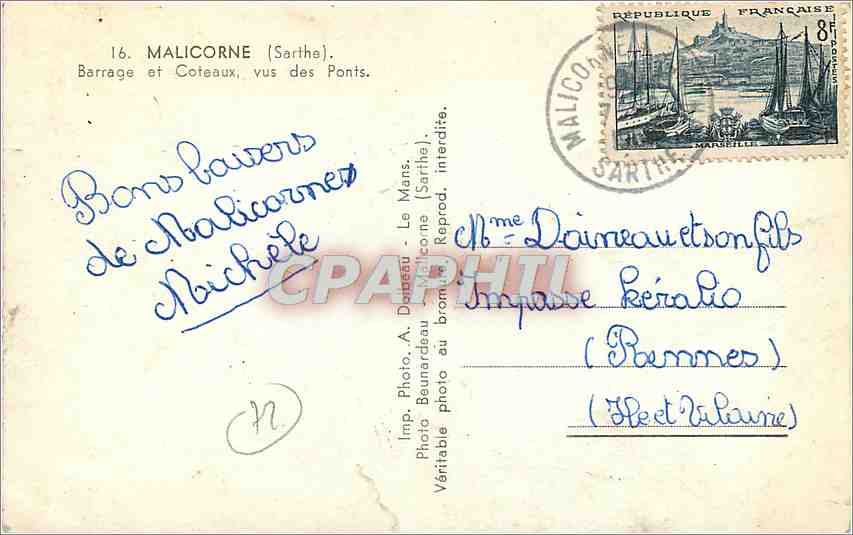 16. MALICORNE (Sarthe).
Barrage et Coteaux, vus des Ponts.
RÉPUBLIQUE FRANÇAISE
8F
POSTES
MARSEILLE
MALICORNE
SARTHE
Bons baisers
de Malicorne
Michèle
72
Imp. Photo. A. Dolbeau - Le Mans.
Photo Beunardeau - Malicorne (Sarthe).
Véritable photo au bromure. Reprod. interdite.
CPAPHIL
Mme Daineau et son fils
Impasse Kéralio
(Rennes)
(Ille et Vilaine)